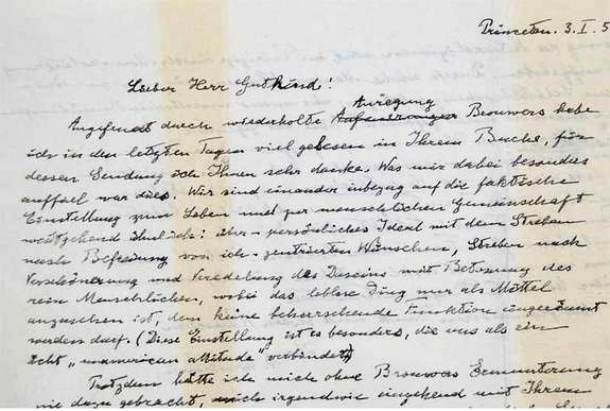 Princeton. 3. I. 5
Lieber Herr Gutkind!
Anregung
Angefeuert durch wiederholte Aufmunterungen Brouwers habe
ich in den letzten Tagen viel gelesen in Ihrem Buche, für
dessen Sendung ich Ihnen sehr danke. Was mir dabei besonders
auffiel war dies. Wir sind einander inbezug auf die faktische
Einstellung zum Leben und zur menschlichen Gemeinschaft
weitgehend ähnlich: über-persönliches Ideal mit dem Streben
nach Befreiung von ich-zentrierten Wünschen, Streben nach
Verschönerung und Veredelung des Daseins mit Betonung des
rein Menschlichen, wobei das leblose Ding nur als Mittel
anzusehen ist, dem keine beherrschende Funktion eingeräumt
werden darf. (Diese Einstellung ist es besonders, die uns als ein
echt „unamerican attitude" verbindet)
Trotzdem hätte ich mich ohne Brouwers Ermunterung
nie dazu gebracht, mich irgendwie eingehend mit Ihrem